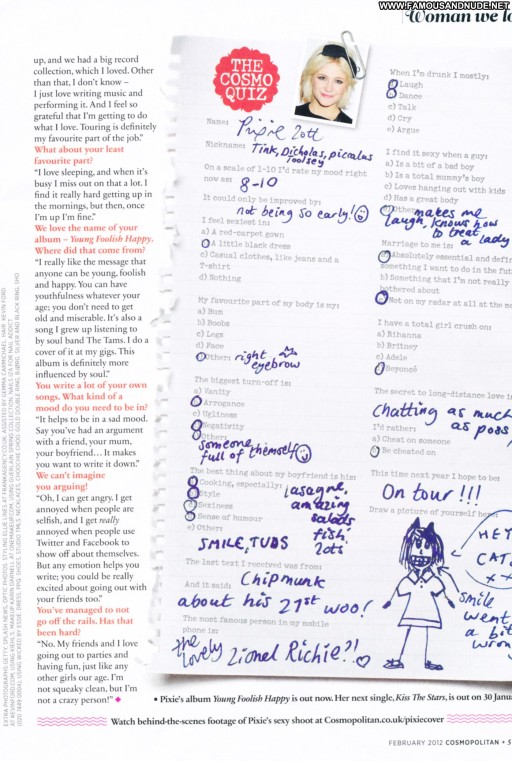 WWW.FAMOUSANDNUDE.NET
Woman we lo
up, and we had a big record
collection, which I loved. Other
than that, I don't know –
I just love writing music and
performing it. And I feel so
grateful that I'm getting to do
what I love. Touring is definitely
my favourite part of the job."
What about your least
favourite part?
"I love sleeping, and when it's
busy I miss out on that a lot. I
find it really hard getting up in
the mornings, but then, once
I'm up I'm fine."
We love the name of your
album – Young Foolish Happy.
Where did that come from?
"I really like the message that
anyone can be young, foolish
and happy. You can have
youthfulness whatever your
age; you don't need to get
old and miserable. It's also a
song I grew up listening to
by soul band The Tams. I do a
cover of it at my gigs. This
album is definitely more
influenced by soul."
You write a lot of your own
songs. What kind of a
mood do you need to be in?
"It helps to be in a sad mood.
Say you've had an argument
with a friend, your mum,
your boyfriend... It makes
you want to write it down."
We can't imagine
you arguing!
"Oh, I can get angry. I get
annoyed when people are
selfish, and I get really
annoyed when people use
Twitter and Facebook to
show off about themselves.
But any emotion helps you
write; you could be really
excited about going out with
your friends too."
You've managed to not
go off the rails. Has that
been hard?
"No. My friends and I love
going out to parties and
having fun, just like any
other girls our age. I'm
not squeaky clean, but I'm
not a crazy person!"
THE
COSMO
QUIZ
Name: Pixie Lott
Nickname: Tink, Dicholas, picculus
Toolsey
On a scale of 1-10 I'd rate my mood right
now as: 8-10
It could only be improved by:
not being so early!
I feel sexiest in:
a) A red-carpet gown
b) A little black dress
c) Casual clothes, like jeans and a
T-shirt
d) Nothing
My favourite part of my body is my:
a) Bum
b) Boobs
c) Legs
d) Face
e) Other: right
eyebrow
The biggest turn-off is:
a) Vanity
b) Arrogance
c) Ugliness
d) Negativity
e) Other:
someone
full of themself
The best thing about my boyfriend is his:
a) Cooking, especially: lasagne,
b) Style amazing
c) Sexiness salads
d) Sense of humour fish,
e) Other: lots
SMILE, TUDS
The last text I received was from:
Chipmunk
And it said:
about his 21st woo!
The most famous person in my mobile
phone is:
the lovely Lionel Richie?!
When I'm drunk I mostly:
a) Laugh
b) Dance
c) Talk
d) Cry
e) Argue
I find it sexy when a guy:
a) Is a bit of a bad boy
b) Is a total mummy's boy
c) Loves hanging out with kids
d) Has a great body
e) Other: makes me
laugh, knows how
to treat
a lady
Marriage to me is:
a) Absolutely essential and defin
something I want to do in the futu
b) Something that I'm not really
bothered about
c) Not on my radar at all at the mo
I have a total girl crush on:
a) Rihanna
b) Britney
c) Adele
d) Beyoncé
The secret to long-distance love i
Chatting as much
as poss
I'd rather:
a) Cheat on someone
b) Be cheated on
This time next year I hope to be:
On tour!!!
Draw a picture of yourself here:
HEY
CAT
xx
smile
went
a bit
wrong
• Pixie's album Young Foolish Happy is out now. Her next single, Kiss The Stars, is out on 30 Janua
Watch behind-the-scenes footage of Pixie's sexy shoot at Cosmopolitan.co.uk/pixiecover
FEBRUARY 2012 COSMOPOLITAN • 5